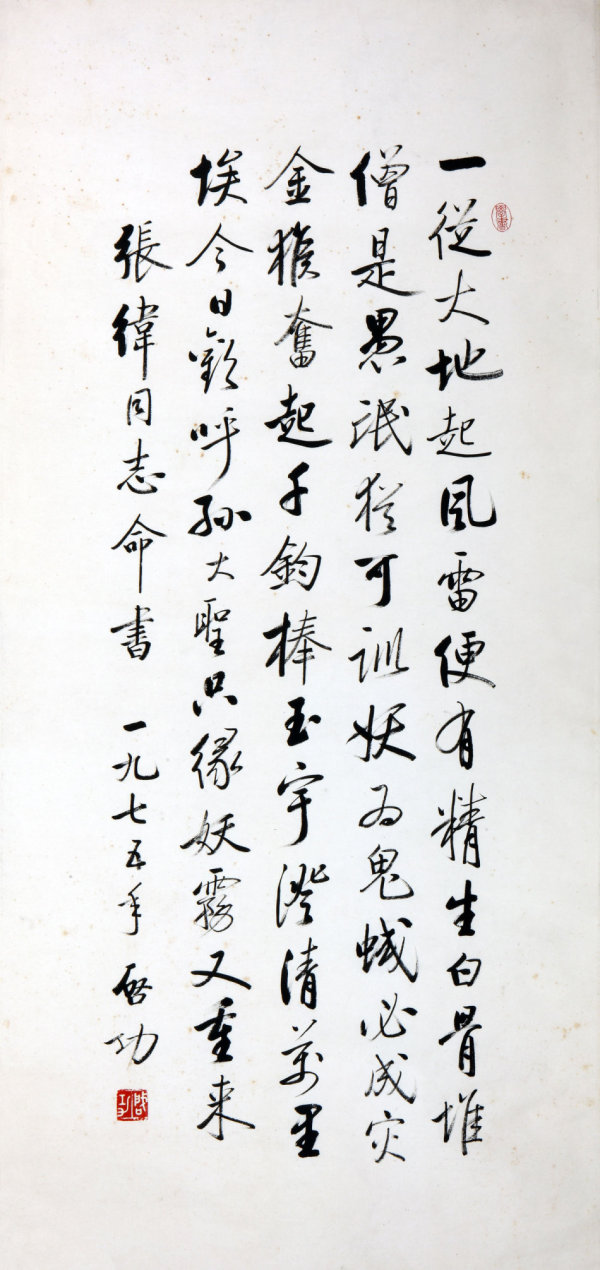 一從大地起風雷便有精生白骨堆
僧是愚氓猶可訓妖為鬼蜮必成灾
金猴奮起千鈞棒玉宇澄清萬里
埃今日歡呼孫大聖只緣妖霧又重来
張緯同志命書 一九七五年 啓功
啓功